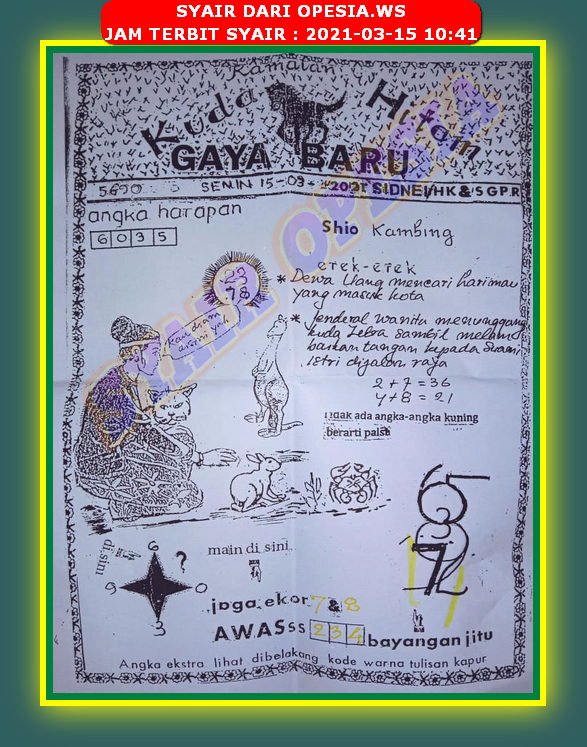 SYAIR DARI OPESIA.WS
JAM TERBIT SYAIR : 2021-03-15 10:41
Ramalan
Kuda Hitam
GAYA BARU
SENIN 15-03-2021 SIDNEI/HK & SGPR
angka harapan
6035
Shio Kambing
SYAIR OPESIA
erek-erek
23
78
* Dewa Uang mencari harimau
yang masuk kota
* Jenderal wanita menunggang
kuda zebra sambil melam
baikan tangan kepada suami
istri dijalan raya
2 + 7 = 36
4 + 8 = 21
Tidak ada angka-angka kuning
berarti palsu
di sini
6
?
9
0
3
main di sini
jaga ekor 7 & 8
AWASss 234 bayangan jitu
Angka ekstra lihat dibelakang kode warna tulisan kapur